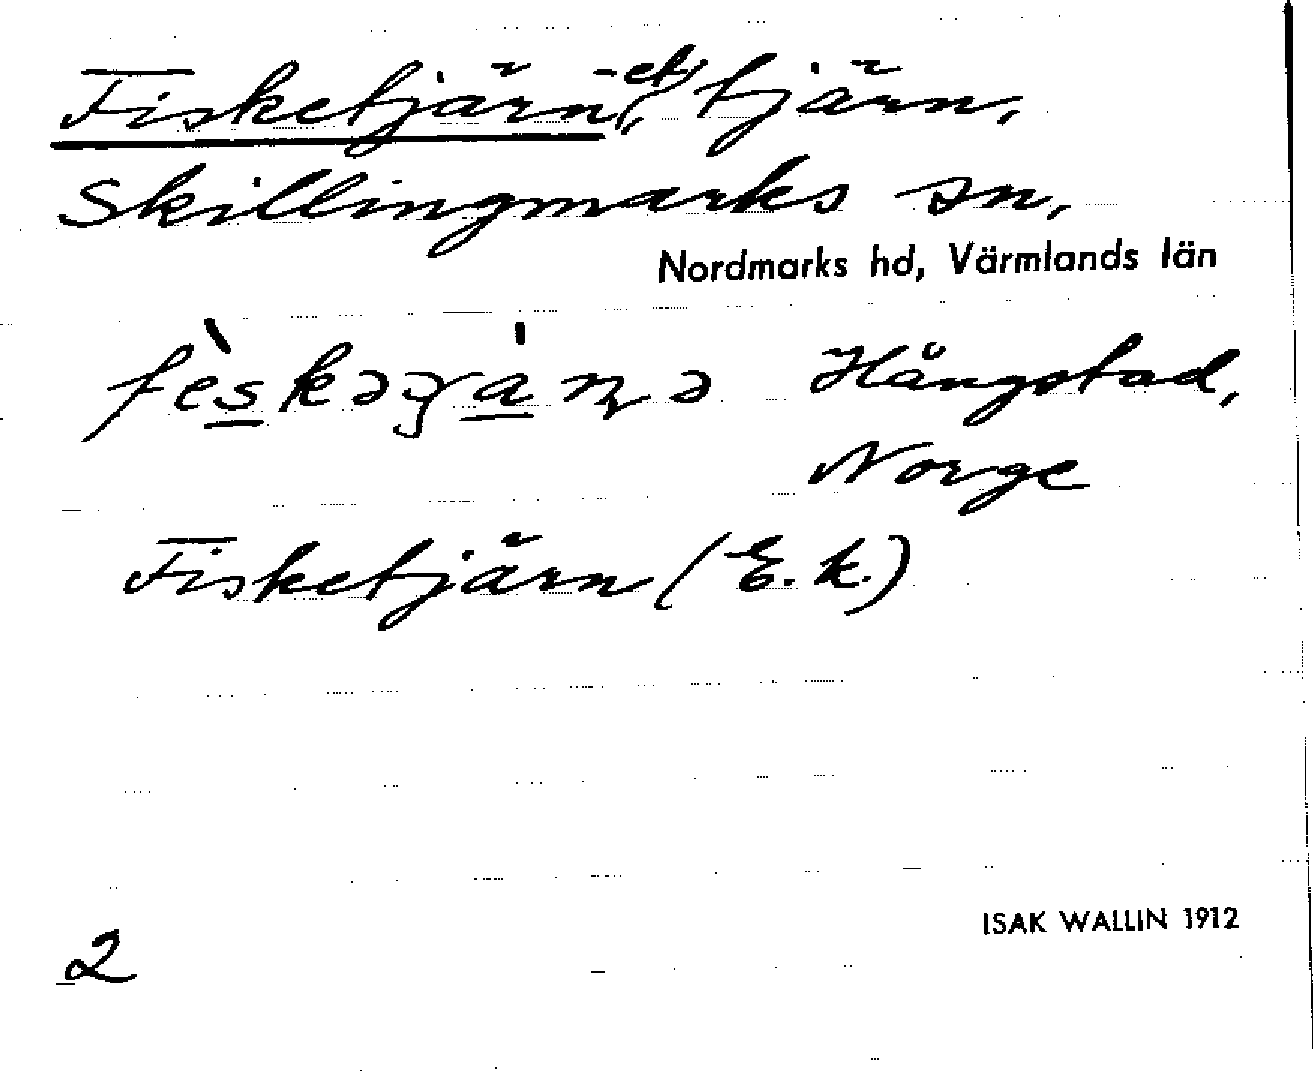 Fisketjärn(-et), tjärn,
Skillingmarks sn,
Nordmarks hd, Värmlands län
Hångstad,
Norge
Fisketjärn (E.k.)
2
ISAK WALLIN 1912